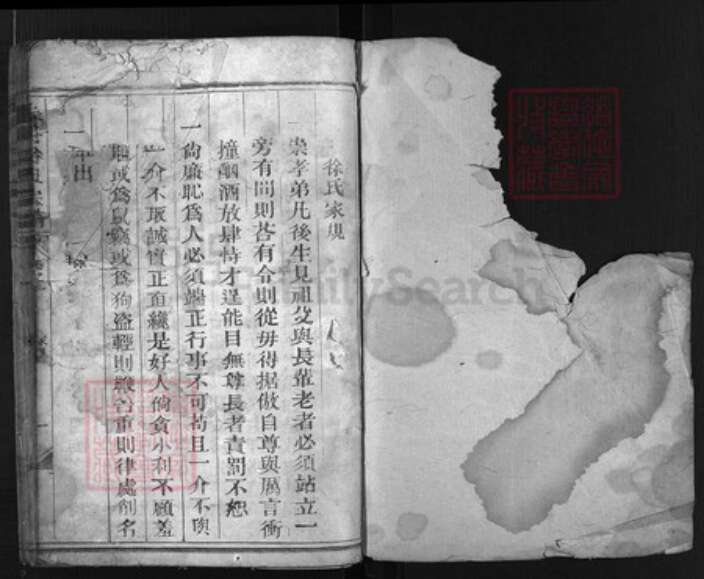 徐氏家規
崇孝弟凡後生見祖父與長輩老者必須站立一
旁有問則荅有令則從毋得据傲自尊與厲言衝
撞酗酒放肆恃才逞能目無尊長者責罰不恕
一尙廉恥爲人必須端正行事不可苟且一介不與
一介不取誠實正直纔是好人倘貪小利不顧羞
恥或爲鼠竊或爲狗盜輕則 重則律處削名
出
FamilySearch